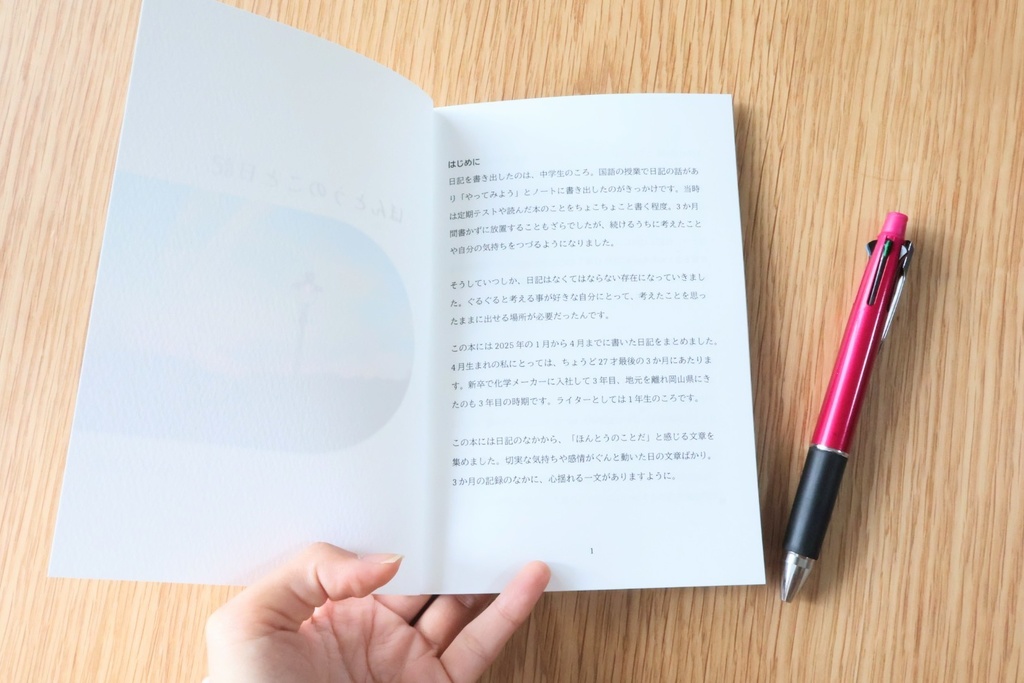 ほんとうのこと日記
はじめに
日記を書き出したのは、中学生のころ。国語の授業で日記の話があ
り「やってみよう」とノートに書き出したのがきっかけです。当時
は定期テストや読んだ本のことをちょこちょこと書く程度。3か月
間書かずに放置することもざらでしたが、続けるうちに考えたこと
や自分の気持ちをつづるようになりました。
そうしていつしか、日記はなくてはならない存在になっていきまし
た。ぐるぐると考える事が好きな自分にとって、考えたことを思っ
たままに出せる場所が必要だったんです。
この本には2025年の1月から4月までに書いた日記をまとめました。
4月生まれの私にとっては、ちょうど27才最後の3か月にあたりま
す。新卒で化学メーカーに入社して3年目、地元を離れ岡山県にき
たのも3年目の時期です。ライターとしては1年生のころです。
この本には日記のなかから、「ほんとうのことだ」と感じる文章を
集めました。切実な気持ちや感情がぐんと動いた日の文章ばかり。
3か月の記録のなかに、心揺れる一文がありますように。
1